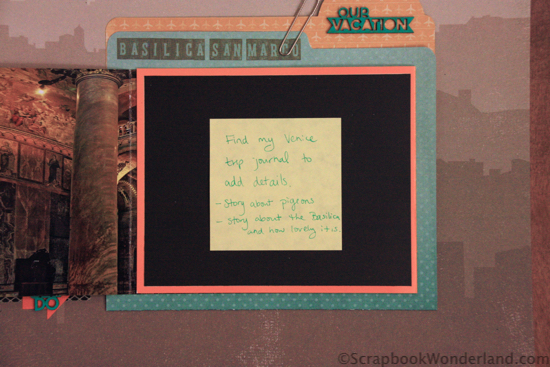 OUR
VACATION
BASILICA SAN MARCO
Find my Venice
trip journal to
add details.
- Story about pigeons
- Story about the Basilica
and how lovely it is.
DO
©ScrapbookWonderland.com